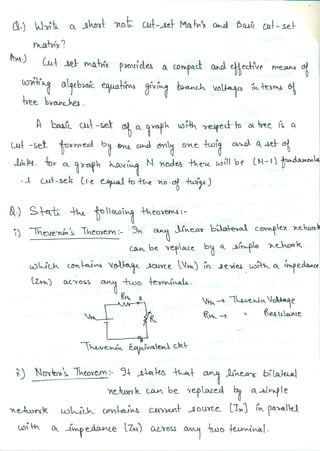 Q.) Write a short note Cut-set Matrix and Basic cut-set
matrix?
Ans.) Cut set matrix provides a compact and effective means of
writing algebraic equations giving branch voltages in terms of
tree branches.
A basic cut-set of a graph with respect to a tree is a
cut-set formed by one and only one twig and a set of
links. for a graph having N nodes there will be (N-1) fundamenta
-l cut-sets (i.e equal to the no. of twigs)
Q.) State the following theorems:-
i) Thevenin's Theorem:- In any linear bilateral complex network
can be replace by a simple network
which contains voltage source (Vth) in series with a impedance
(Zth) across any two terminals.
Rth
Vth
RL
Vth → Thevenin Voltage
Rth → " Resistance
Thevenin Equivalent ckt
ii) Norton's Theorem:- It states that any linear bilateral
network can be replaced by a simple
network which contains current source [In] in parallel
with a impedance (Zn) across any two terminal.